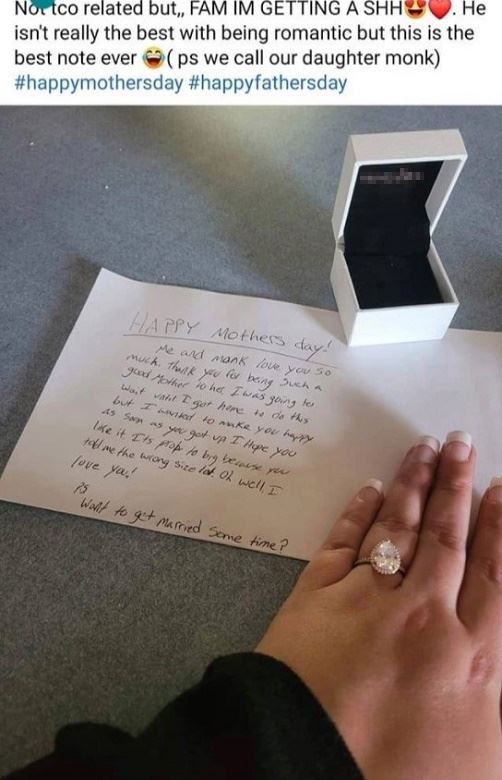 Not tco related but,, FAM IM GETTING A SHH😍❤️. He
isn't really the best with being romantic but this is the
best note ever 😂( ps we call our daughter monk)
#happymothersday #happyfathersday
HAPPY Mothers day!
Me and monk love you so
much. Thank you for being such a
good Mother to her, I was going to
wait until I got home to do this
but I wanted to make you happy
as soon as you got up I Hope you
like it Its prob to big because you
told me the wrong size lol. Oh well, I
love ya!
PS
Want to get married some time?